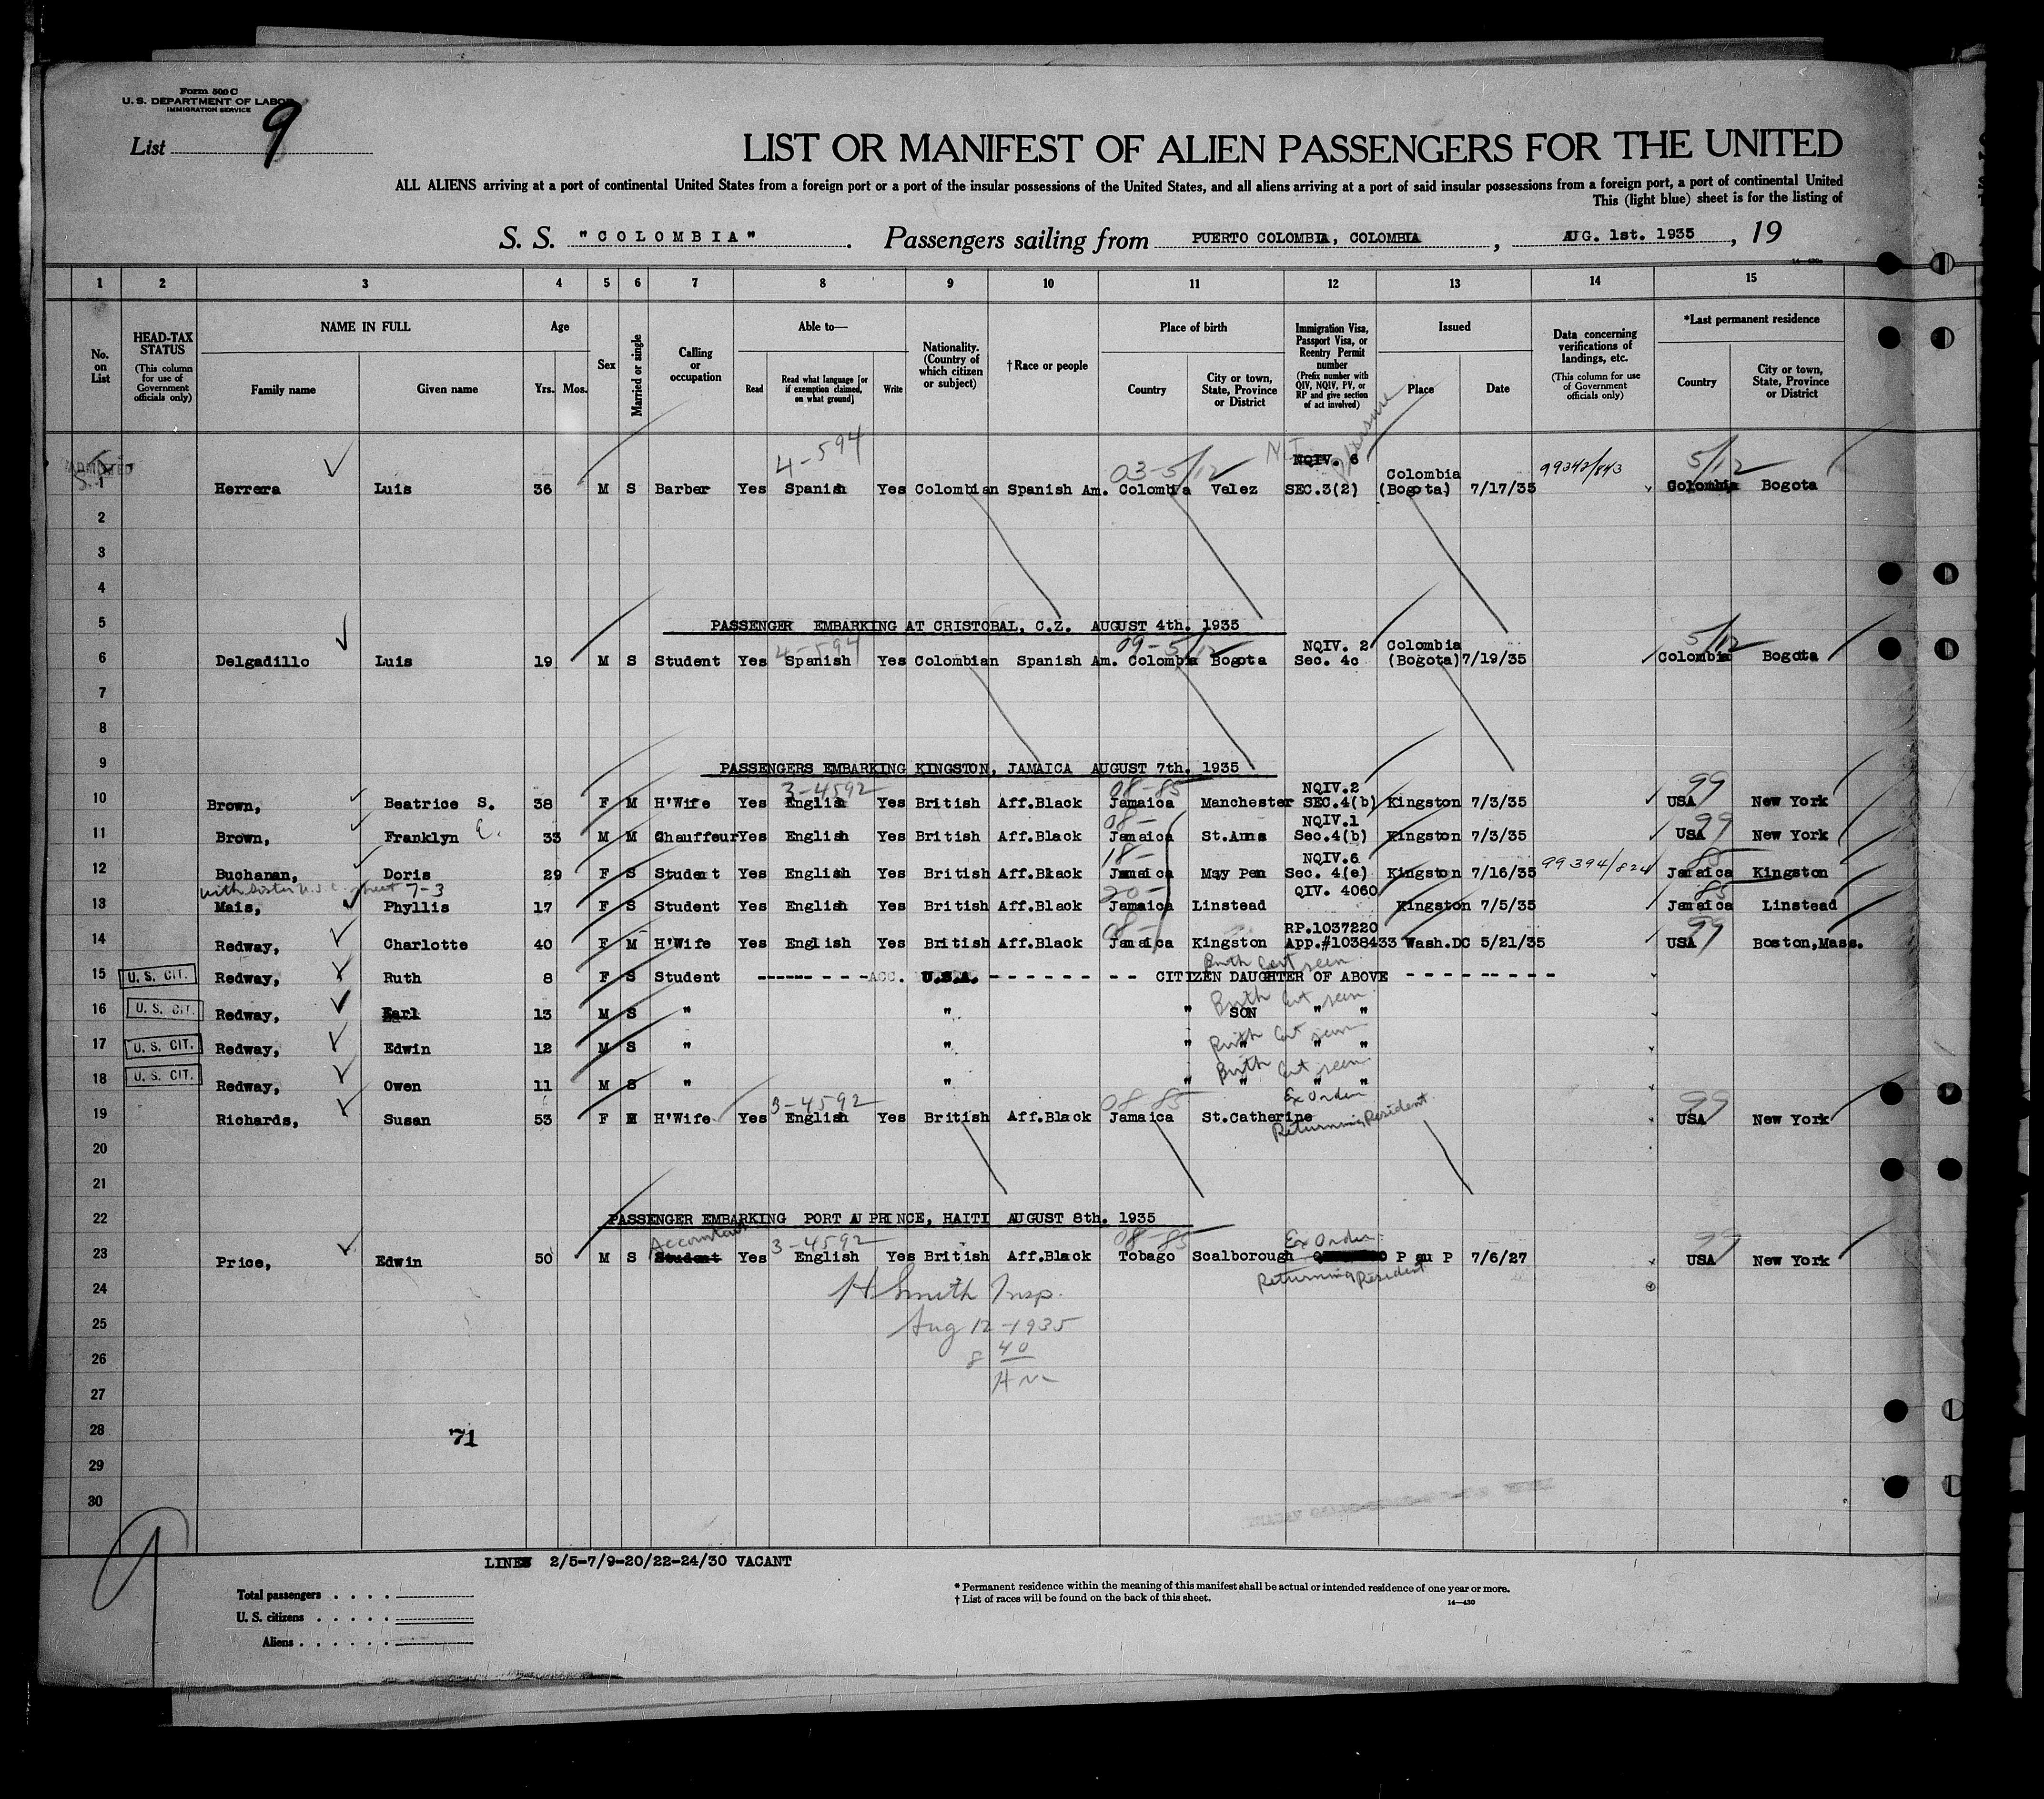 Form 500 C
U. S. DEPARTMENT OF LABOR
IMMIGRATION SERVICE
List 9
LIST OR MANIFEST OF ALIEN PASSENGERS FOR THE UNITED
ALL ALIENS arriving at a port of continental United States from a foreign port or a port of the insular possessions of the United States, and all aliens arriving at a port of said insular possessions from a foreign port, a port of continental United
This (light blue) sheet is for the listing of
S. S. "COLOMBIA" . Passengers sailing from PUERTO COLOMBIA, COLOMBIA , AUG. 1st. 1935 , 19
1 2 3 4 5 6 7 8 9 10 11 12 13 14 15
No. on List
HEAD-TAX STATUS (This column for use of Government officials only)
NAME IN FULL Family name Given name
Age Yrs. Mos.
Sex
Married or single
Calling or occupation
Able to— Read Read what language [or if exemption claimed, on what ground] Write
Nationality. (Country of which citizen or subject)
†Race or people
Place of birth Country City or town, State, Province or District
Immigration Visa, Passport Visa, or Reentry Permit number (Prefix number with QIV, NQIV, PV, or RP and give section of act involved)
Issued Place Date
Data concerning verifications of landings, etc. (This column for use of Government officials only)
*Last permanent residence Country City or town, State, Province or District
ADMITTED 4-594 03-5/12 NQIV. 6 Colombia 99343/843 5/12
1 Herrera Luis 36 M S Barber Yes Spanish Yes Colombian Spanish Am. Colombia Velez SEC.3(2) (Bogota) 7/17/35 Colombia Bogota
2
3
4
5 PASSENGER EMBARKING AT CRISTOBAL, C.Z. AUGUST 4th. 1935
4-594 09-5/12 NQIV. 2 Colombia 5/12
6 Delgadillo Luis 19 M S Student Yes Spanish Yes Colombian Spanish Am. Colombia Bogota Sec. 4c (Bogota) 7/19/35 Colombia Bogota
7
8
9 PASSENGERS EMBARKING KINGSTON, JAMAICA AUGUST 7th. 1935
3-4592 08-85 NQIV.2 99
10 Brown, Beatrice S. 38 F M H'Wife Yes English Yes British Aff.Black Jamaica Manchester SEC.4(b) Kingston 7/3/35 USA New York
08- NQIV.1 99
11 Brown, Franklyn E. 33 M M Chauffeur Yes English Yes British Aff.Black Jamaica St.Anns Sec.4(b) Kingston 7/3/35 USA New York
18- NQIV.6 99394/824 85
12 Buchanan, Doris 29 F S Student Yes English Yes British Aff.Black Jamaica May Pen Sec. 4(e) Kingston 7/16/35 Jamaica Kingston
with sister U.S.C. sheet 7-3 20- QIV. 4060 85
13 Mais, Phyllis 17 F S Student Yes English Yes British Aff.Black Jamaica Linstead Kingston 7/5/35 Jamaica Linstead
08- RP.1037220 99
14 Redway, Charlotte 40 F M H'Wife Yes English Yes British Aff.Black Jamaica Kingston App.#1038433 Wash.DC 5/21/35 USA Boston,Mass.
Birth Cert seen
15 U. S. CIT. Redway, Ruth 8 F S Student - - - - - - - ACC. U.S.A. - - - - - - - - CITIZEN DAUGHTER OF ABOVE - - - - - - - -
Birth Cert seen
16 U. S. CIT. Redway, Earl 13 M S " " " SON " "
Birth Cert seen
17 U. S. CIT. Redway, Edwin 12 M S " " " " " "
Birth Cert seen
18 U. S. CIT. Redway, Owen 11 M S " " " " " "
3-4592 08-85 Ex Order 99
19 Richards, Susan 53 F M H'Wife Yes English Yes British Aff.Black Jamaica St.Catherine Returning Resident USA New York
20
21
22 PASSENGER EMBARKING PORT AU PRINCE, HAITI AUGUST 8th. 1935
Accountant 3-4592 08-85 Ex Order 99
23 Price, Edwin 50 M S Student Yes English Yes British Aff.Black Tobago Scalborough P au P 7/6/27 USA New York
Returning Resident
24 H Smith Insp.
25 Aug 12-1935
26 8 40
27
28 71
29
30
9
LINES 2/5-7/9-20/22-24/30 VACANT
Total passengers . . . .
U. S. citizens . . . . .
Aliens . . . . . .
* Permanent residence within the meaning of this manifest shall be actual or intended residence of one year or more.
† List of races will be found on the back of this sheet.
14—430